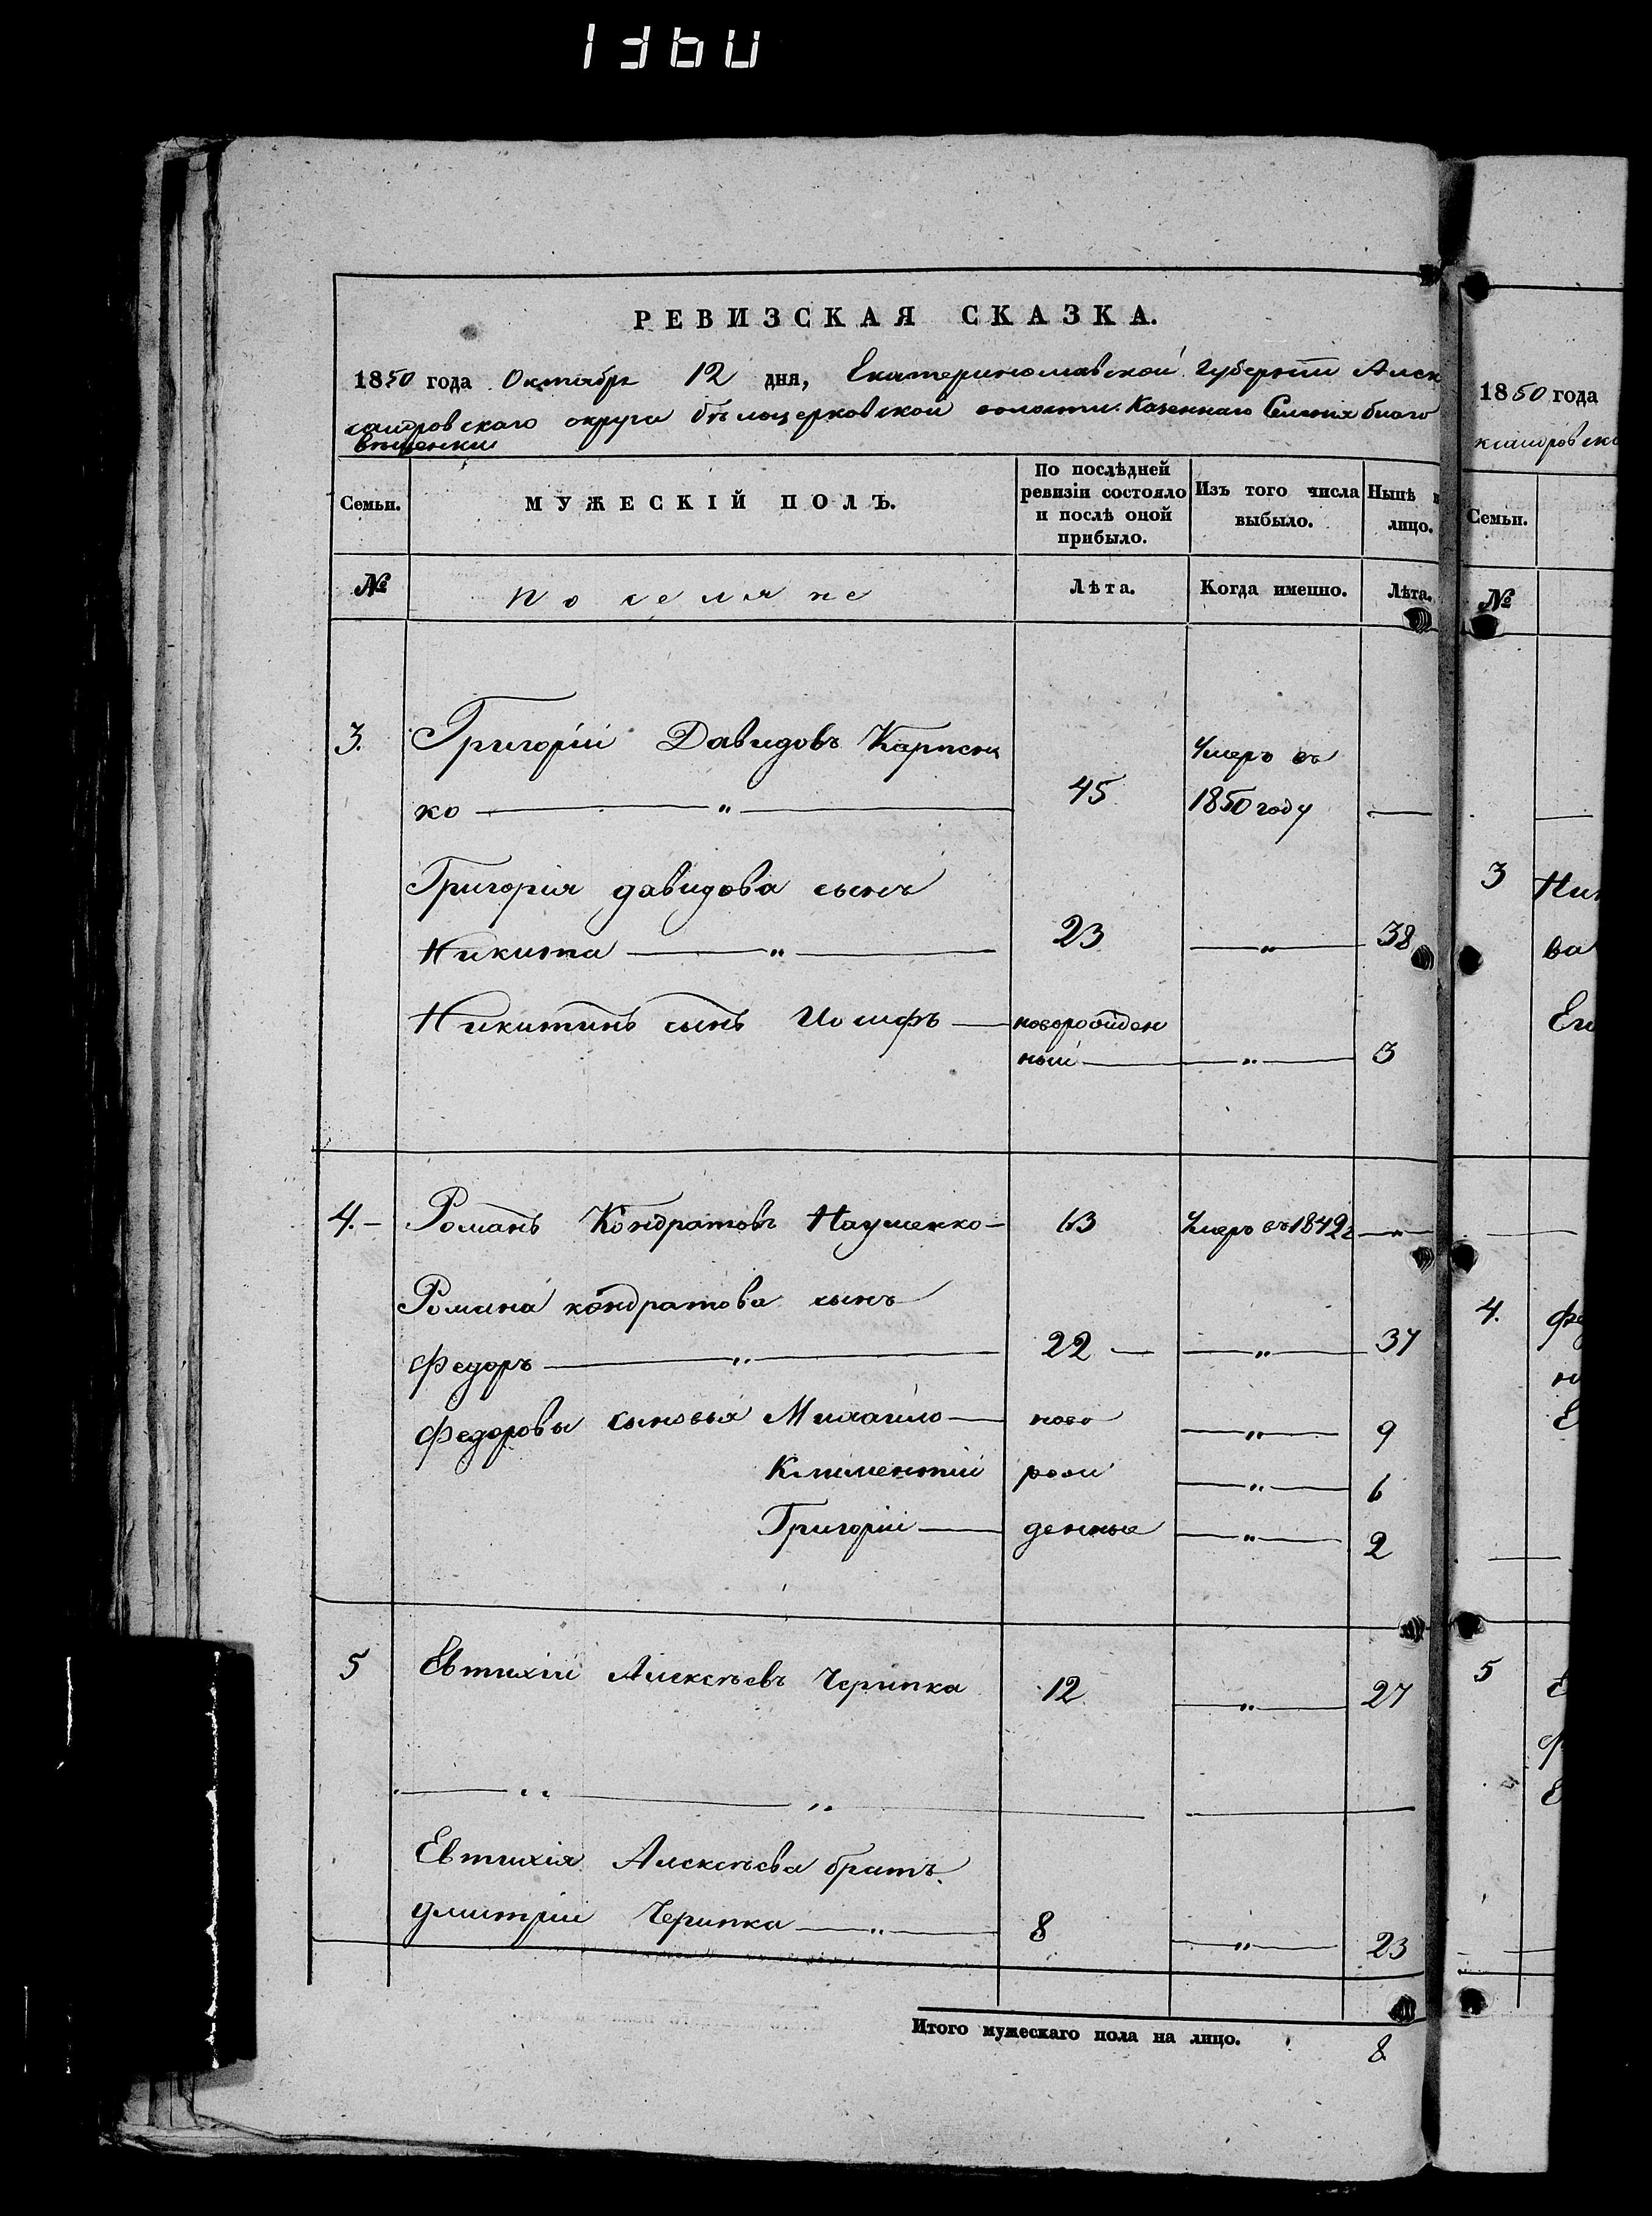 1360
РЕВИЗСКАЯ СКАЗКА.
1850 года Октября 12 дня, Екатеринославской Губернии Алек
сандровскаго округа бѣлоцерковской волости Казеннаго Селенія благо
вѣщенки
Семьи.
МУЖЕСКІЙ ПОЛЪ.
По послѣдней ревизіи состояло и послѣ оной прибыло.
Изъ того числа выбыло.
Нынѣ н лицо.
№
поселяне
Лѣта.
Когда именно.
Лѣта.
3. Григорій Давидовъ Карпен
ко — " — 45 Умеръ въ 1850 году —
Григорія давидова сынъ
Никита — " — 23 — " — 38
Никитинъ сынъ Иосифъ — новорожден
ный — " — 3
4. – Романъ Кондратовъ Науменко – 63 Умеръ въ 1842 г — " —
Романа кондратова сынъ
Федоръ — " — 22 — — " — 37
Федоровы сыновья Михайло — ново — " — 9
Климентий рож — " — 6
Григорій — денные — " — 2
5 Евтихій Алексѣевъ Черипка 12 — " — 27
— " — " —
Евтихія Алексѣева братъ
дмитрій Черипка — " — 8 — " — 23
Итого мужескаго пола на лицо. 8
1850 года
ксандровска
Семьи.
№
3 Ник
ва
Ег
4. Фед
5